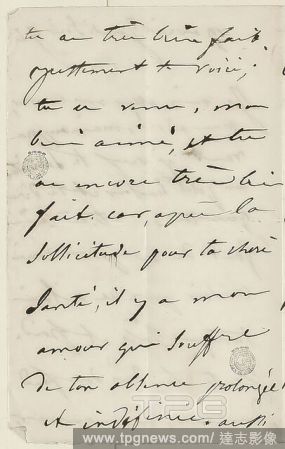 tu as très bien fait
justement te voici,
tu es venu, mon
bien aimé, et tu
as encore très bien
fait. car, après la
sollicitude pour ta chère
santé, il y a mon
amour qui souffre
de ton absence prolongée
et indéfinie. aussi
TPG
www.tpgnews.com / 達志影像